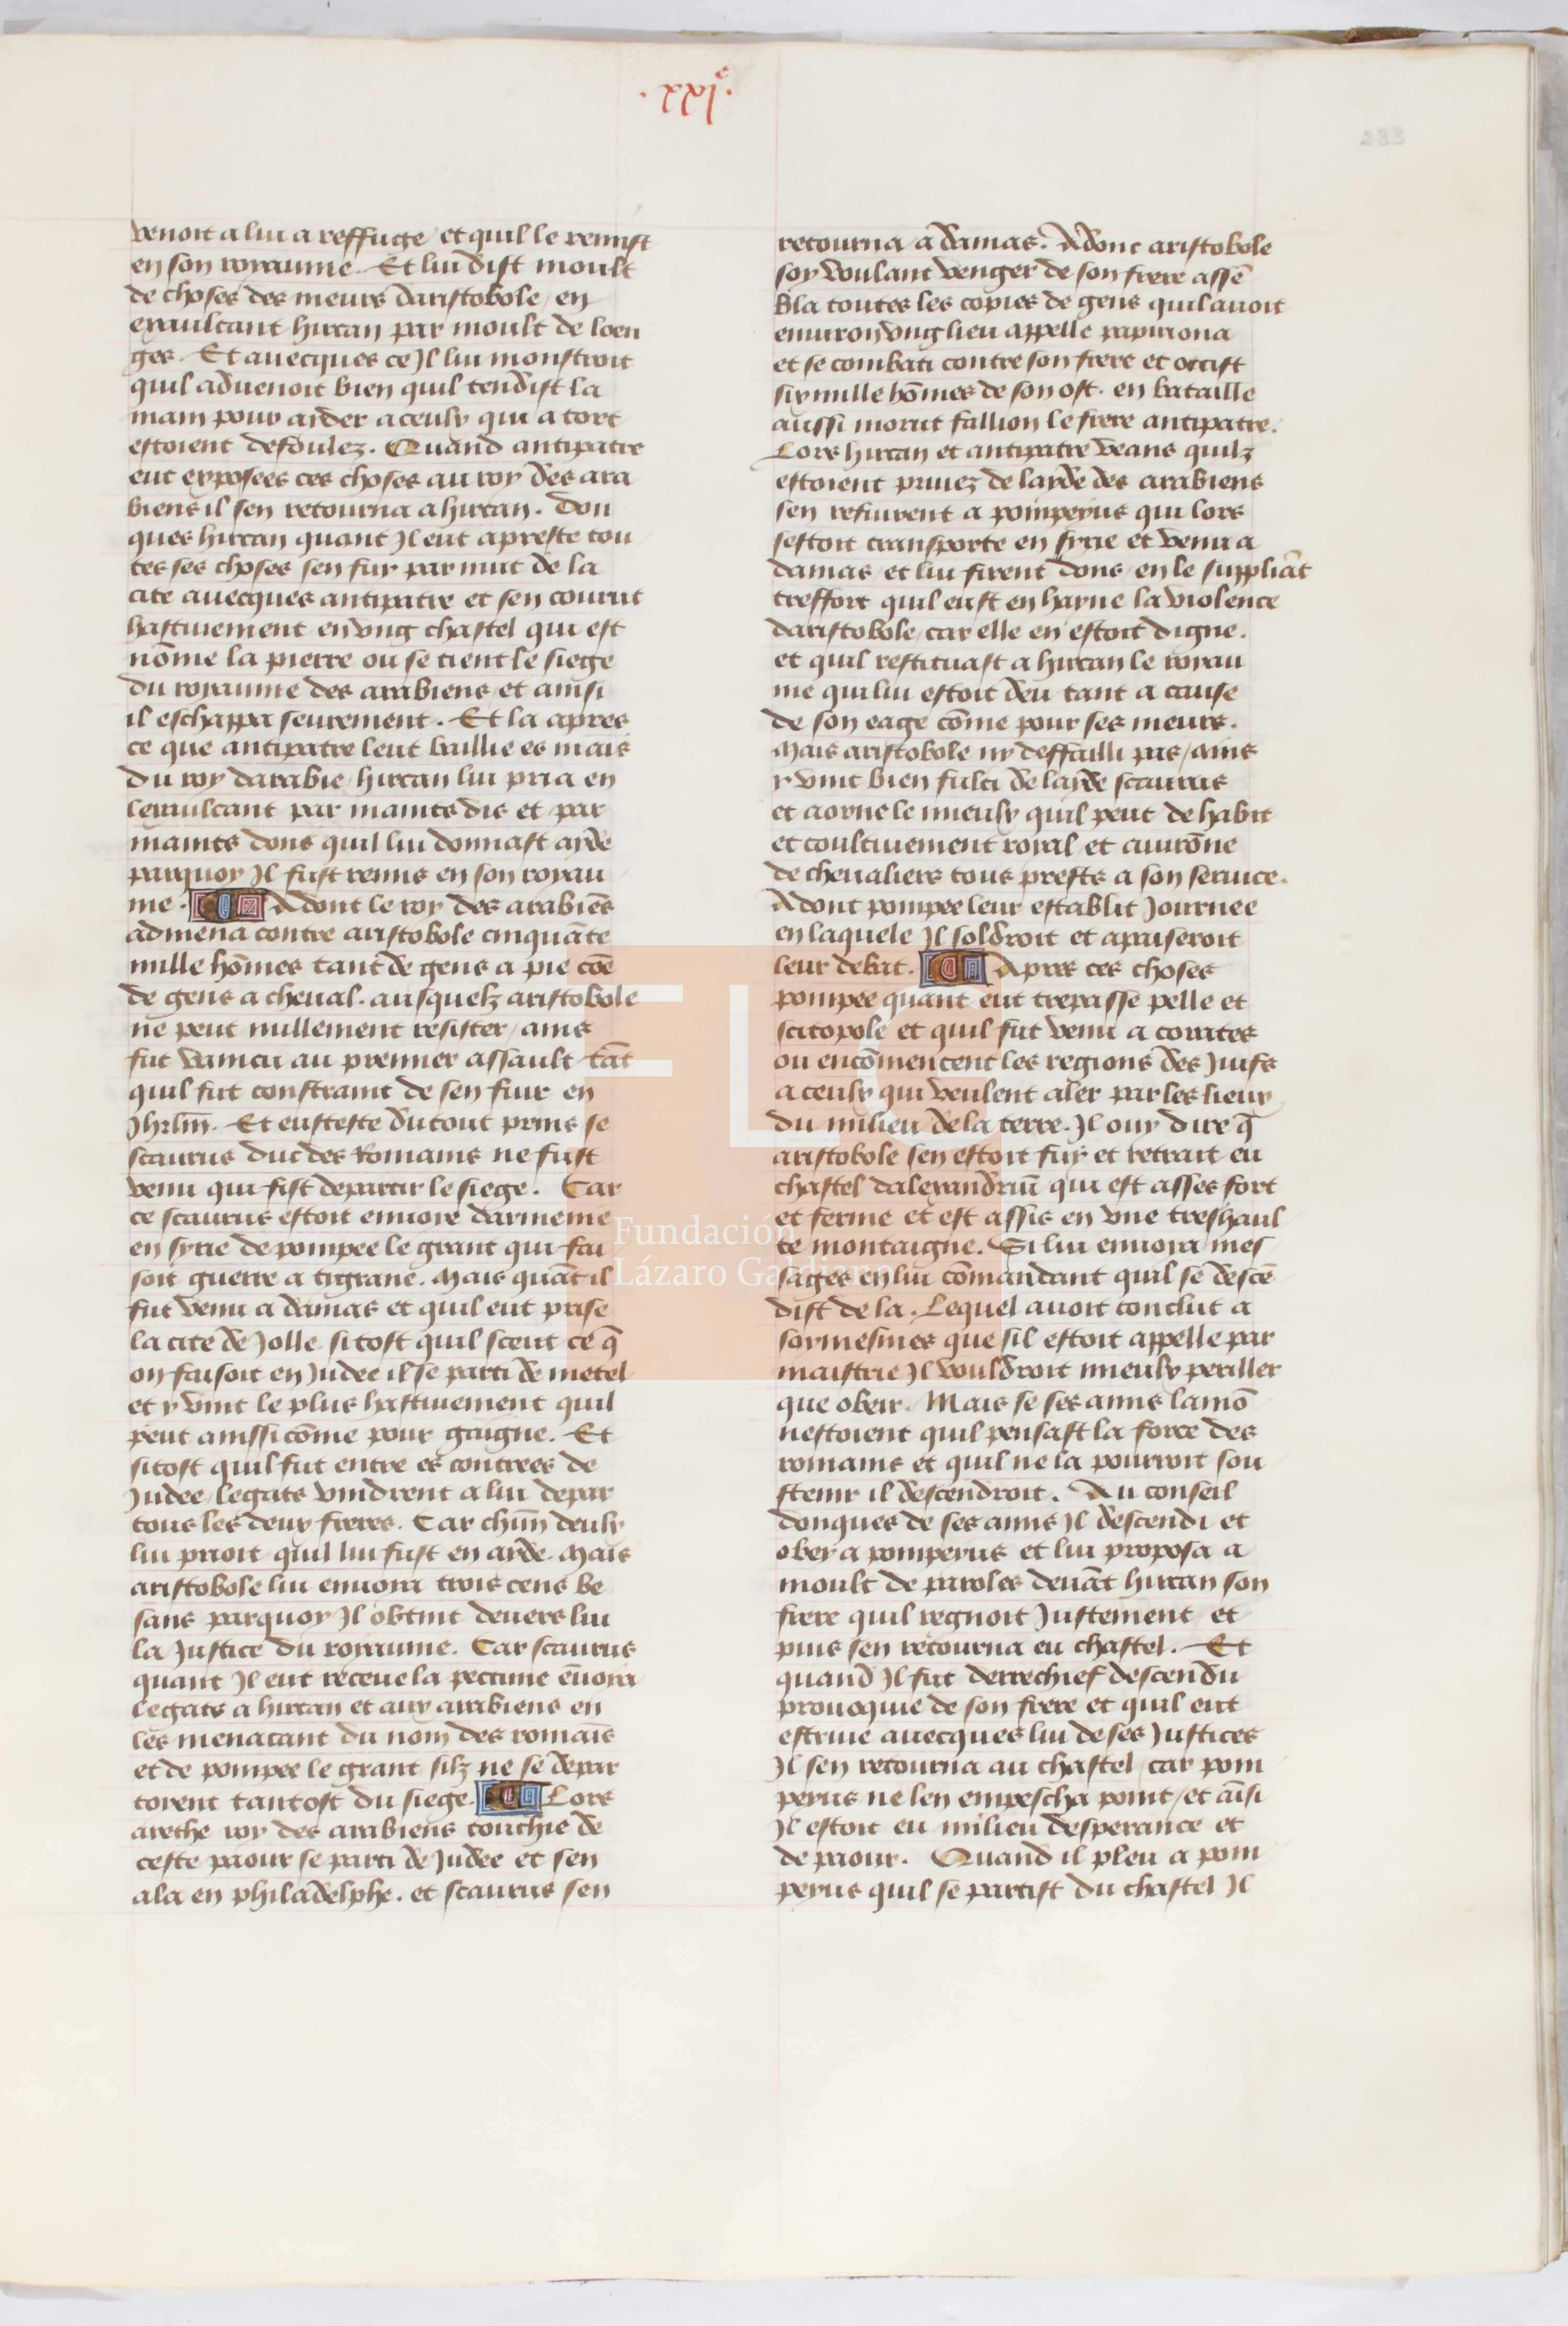 .xxjᵉ.
233
venoit a lui a reffuge / et quil le remist
en son royaume. Et lui dist moult
de choses des meurs daristobole / en
exaultant hircan par moult de loen
ges. Et avecques ce Jl lui monstroit
quil advenoit bien quil tendist la
main pour aider a ceulx qui a tort
estoient defoulez. Quand antipatre
eut exposees ces choses au roy des ara
biens il sen retourna a hircan. Don
ques hircan quant Jl eut apreste tou
tes ses choses sen fuy par nuit de la
cite avecques antipatre et sen courut
hastivement en vng chastel qui est
nōme la pierre ou se tient le siege
du royaume des arabiens / et ainsi
il eschappa seurement. Et la apres
ce que antipatre leut baillie es mais
du roy darabie / hircan lui pria en
lexaultant par maintes dis et par
maintes dons quil lui donnast ayde
parquoy Jl fust remis en son royau
me. Adont le roy des arabiēs
admena contre aristobole cinquāte
mille hōmes tant de gens a pie cōe
de gens a cheval. ausquelz aristobole
ne peut nullement resister / ains
fut vaincu au premier assault tāt
quil fut constraint de sen fuir en
Jhrlm̄. Et eust este du tout prins se
scaurus duc des Romains ne fust
venu qui fist departir le siege. Car
ce scaurus estoit envoie darmenie
en syrie de pompee le grant qui fai
soit guerre a tigrane. Mais quāt il
fut venu a damas et quil eut prise
la cite de Jolle. sitost quil sceut ce q̄
on faisoit en Judee il se parti de metel
et y vint le plus hastivement quil
peut ainssi cōme pour gaigne. Et
sitost quil fut entre es contrees de
Judee / legats vindrent a lui depar
tous les deux freres. Car chun̄ deulx
lui prioit quil lui fust en ayde. Mais
aristobole lui envoia trois cens be
sans parquoy Jl obtint devers lui
la Justice du royaume. Car scaurus
quant Jl eut receue la peccune ēvoia
legats a hircan et aux arabiens en
les menacant du nom des romaīs
et de pompee le grant silz ne se depar
toient tantost du siege. Lors
arethe roy des arabiens touchie de
ceste paour se parti de Judee et sen
ala en philadelphe. et scaurus sen
retourna a damas. Adonc aristobole
soy voulant venger de son frere assē
bla toutes les copies de gens quil avoit
environ vng lieu appelle papiriona
et se combati contre son frere et occist
six mille hōmes de son ost. en bataille
aussi morut fallion le frere antipatre.
Lors hircan et antipatre veans quilz
estoient privez de layde des arabiens
sen refuirent a pompeyus qui lors
sestoit transporte en syrie et venu a
damas / et lui firent dons / en le suppliāt
treffort quil eust en hayne la violence
daristobole / car elle en estoit digne.
et quil restituast a hircan le royau
me qui lui estoit deu tant a cause
de son eage cōme pour ses meurs.
Mais aristobole ny deffailli pas / ains
y vint bien fulci de layde scaurus
et aorne le mieulx quil peut de habit
et coultivement royal et avirōne
de chevaliers tous prests a son service.
Adont pompee leur establit Journee
en laquele Jl soldroit et apaiseroit
leur debat. Apres ces choses
pompee quant eut trepasse pelle et
scitopole et quil fut venu a corates
ou encōmencent les regions des Juifs
a ceulx qui veulent aler par les lieux
du milieu de la terre. Jl ouy dire q̄
aristobole sen estoit fuy et retrait eu
chastel dalexandriū qui est asses fort
et ferme et est assis en vne treshaul
te montaigne. Si lui envoia mes
sages en lui cōmandant quil se descē
dist de la. Lequel avoit conclut a
soymesmes que sil estoit appelle par
maistrie Jl vouldroit mieulx periller
que obeir. Mais se ses amis lamō
nestoient quil pensast la force des
romains et quil ne la pourroit sou
stenir il descendroit. Au conseil
donques de ses amis Jl descendi et
obey a pompeyus et lui proposa a
moult de paroles devāt hircan son
frere quil regnoit Justement / et
puis sen retourna eu chastel. Et
quand Jl fut derrechief descendu
provoquie de son frere et quil eut
estrive avecques lui de ses Justices
Jl sen retourna au chastel / car pom
peyus ne len empescha point / et aīsi
Jl estoit eu milieu desperance et
de paour. Quand il pleu a pom
peyus quil se partist du chastel Jl
FLG
Fundación
Lázaro Galdiano